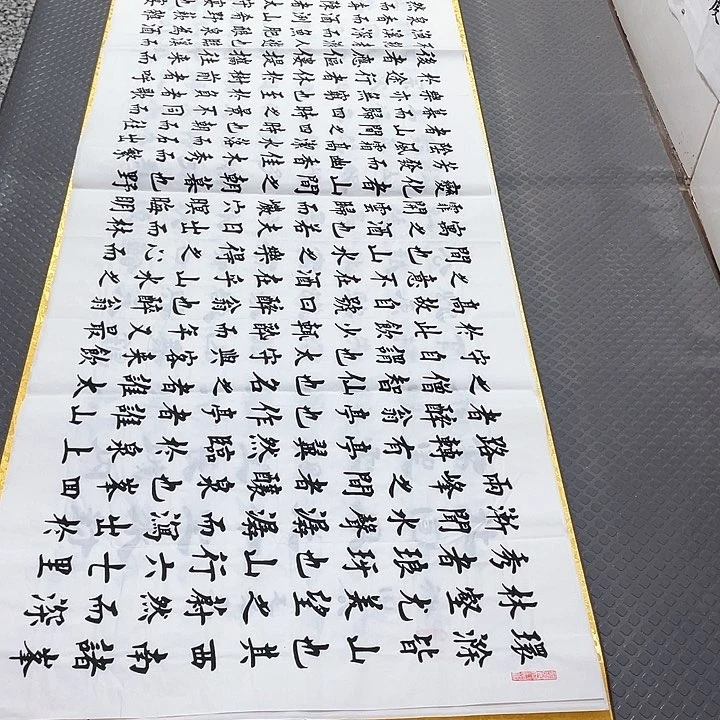 環滁皆山也其西南諸峯
林壑尤美望之蔚然而深
秀者琅玡也山行六七里
漸聞水聲潺潺而瀉出於
兩峰之間者釀泉也峯回
路轉有亭翼然臨於泉上
者醉翁亭也作亭者誰山
之僧智仙也名之者誰太
守自謂也太守與客來飲
於此飲少輒醉而年又最
高故自號曰醉翁也醉翁
之意不在酒在乎山水之
間也山水之樂得之心而
寓之酒也若夫日出而林
霏開雲歸而巖穴暝晦明
變化者山間之朝暮也野
芳發而幽香佳木秀而繁
陰風霜高潔水落而石出
者山間之四時也朝而往
暮而歸四時之景不同而
樂亦無窮也至於負者歌
於途行者休於樹前者呼
後者應傴僂提攜往來而